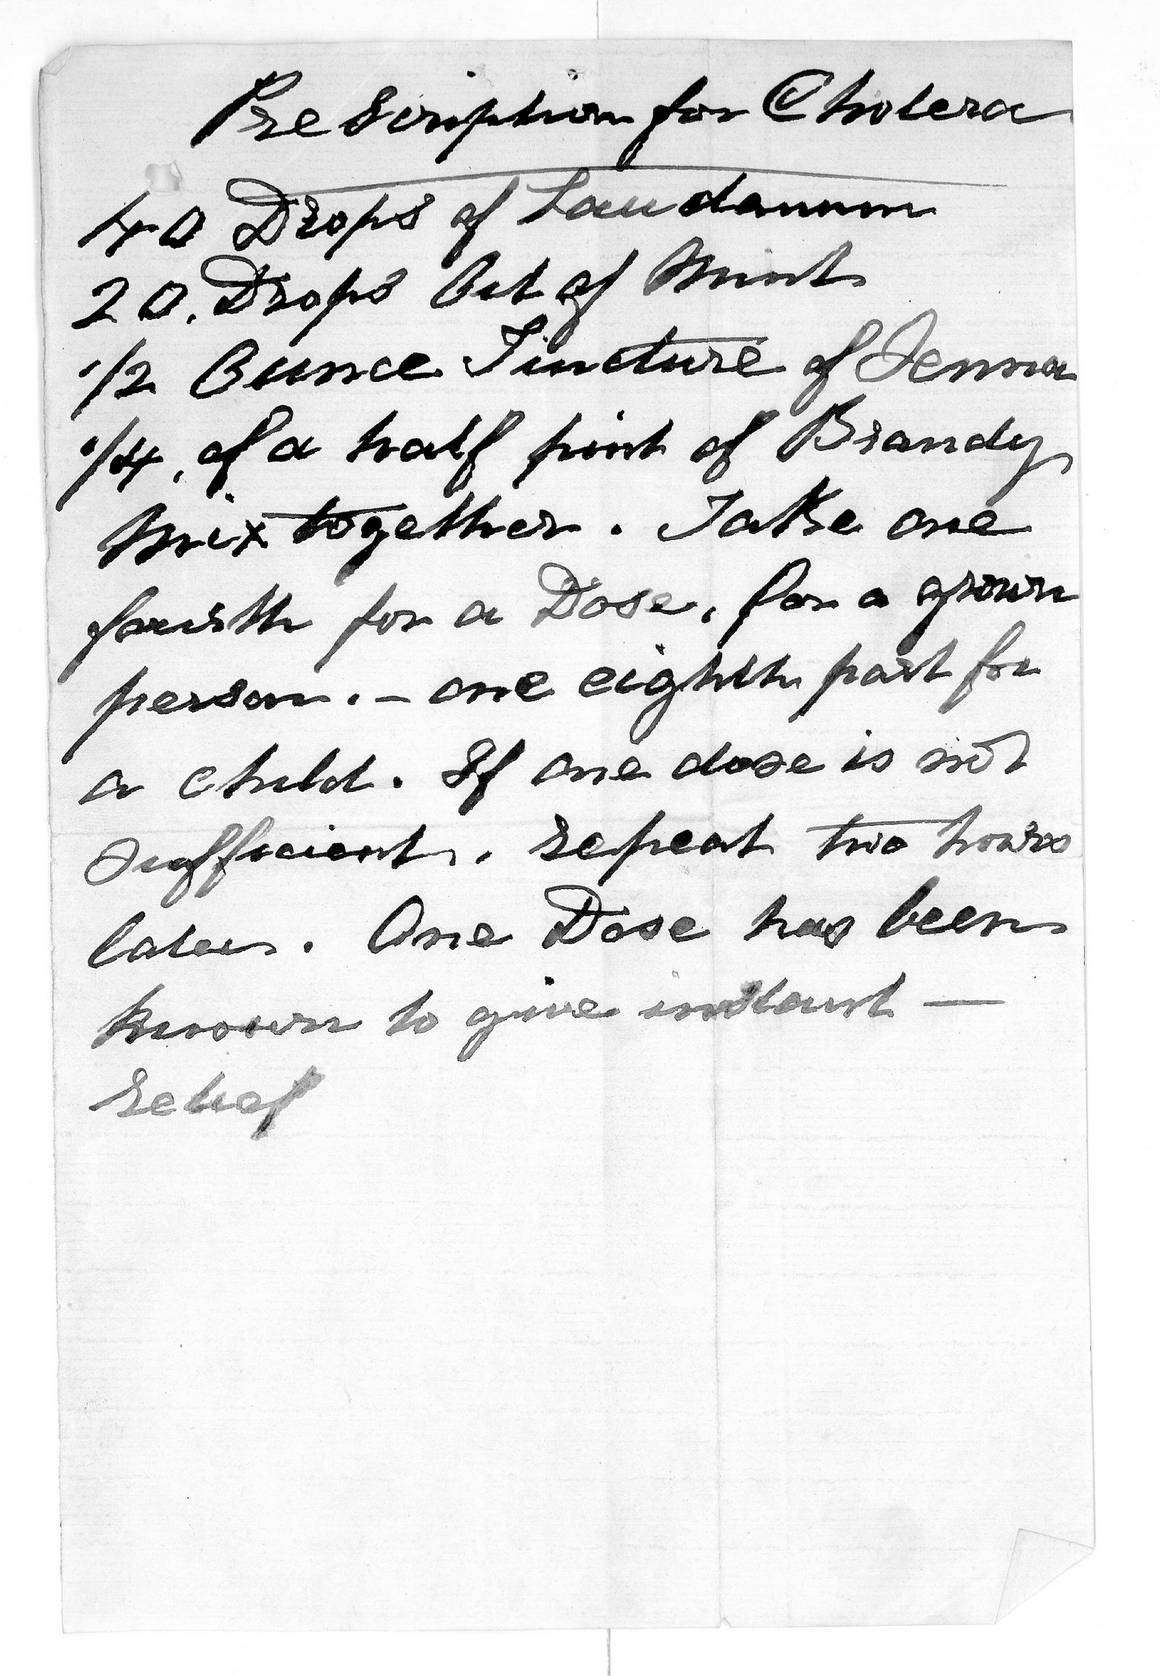 Prescription for Cholera
40 Drops of Laudanum
20. Drops Out of Mint
1/2 Ounce Tincture of Senna
1/4, of a half pint of Brandy
Mix together. Take one
fourth for a Dose, for a grown
person. – one eighth part for
a child. If one dose is not
sufficient, repeat two hours
later. One Dose has been
known to give instant —
relief